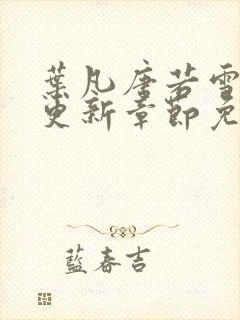 葉凡唐若雪
更新章節免
藍春吉